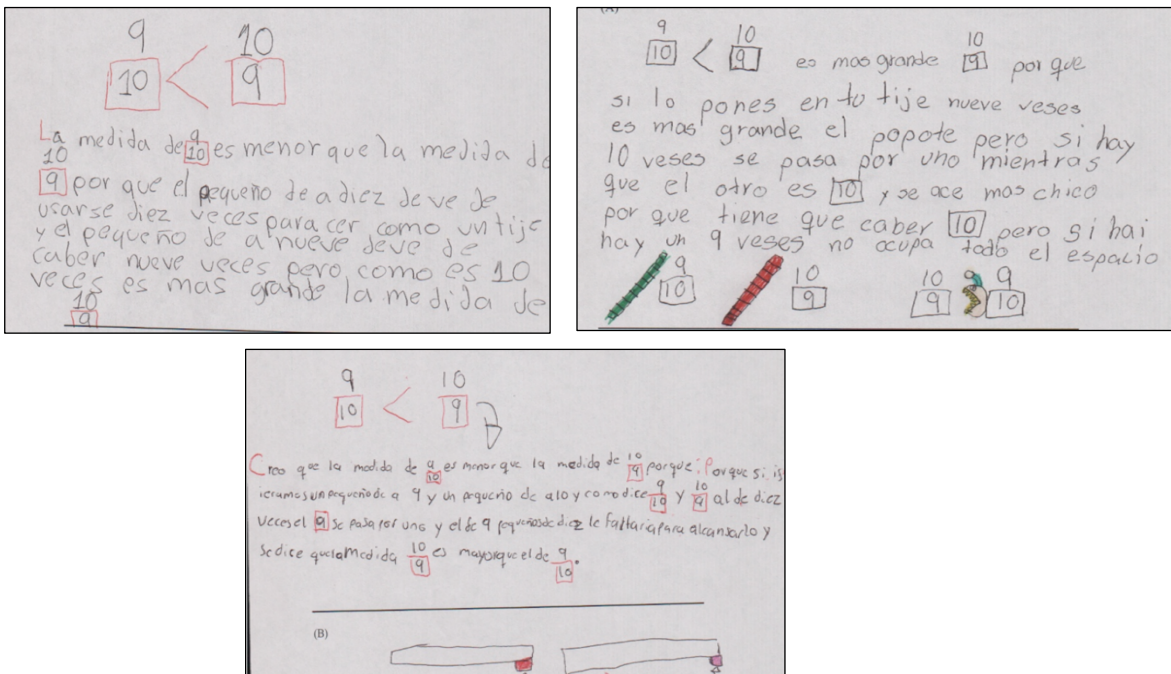 9 10
10 < 9
La medida de 9 es menor que la medida de
10 10
9 por que el pequeño de a diez de ve de
usarse diez veces para cer como un tije
y el pequeño de a nueve deve de
caber nueve veces pero como es 10
veces es mas grande la medida de
10
9
9 10 10
10 < 9 es mas grande 9 por que
si lo pones en tu tije nueve veses
es mas grande el popote pero si hay
10 veses se pasa por uno mientras
que el otro es 10 y se ace mas chico
por que tiene que caber 10 pero si hai
hay un 9 veses no ocupa todo el espacio
9 10 10 9
10 9 9 10
9 10
10 < 9
Creo que la medida de 9 es menor que la medida de 10 porque: Porque si is
10 9
ieramos un pequeño de a 9 y un pequeño de a 10 y como dice 9 y 10 al de diez
10 9
veces el 9 se pasa por uno y el de 9 pequeños de diez le faltaria para alcansarlo y
se dice que la medida 10 es mayor que el de 9.
9 10
(B)